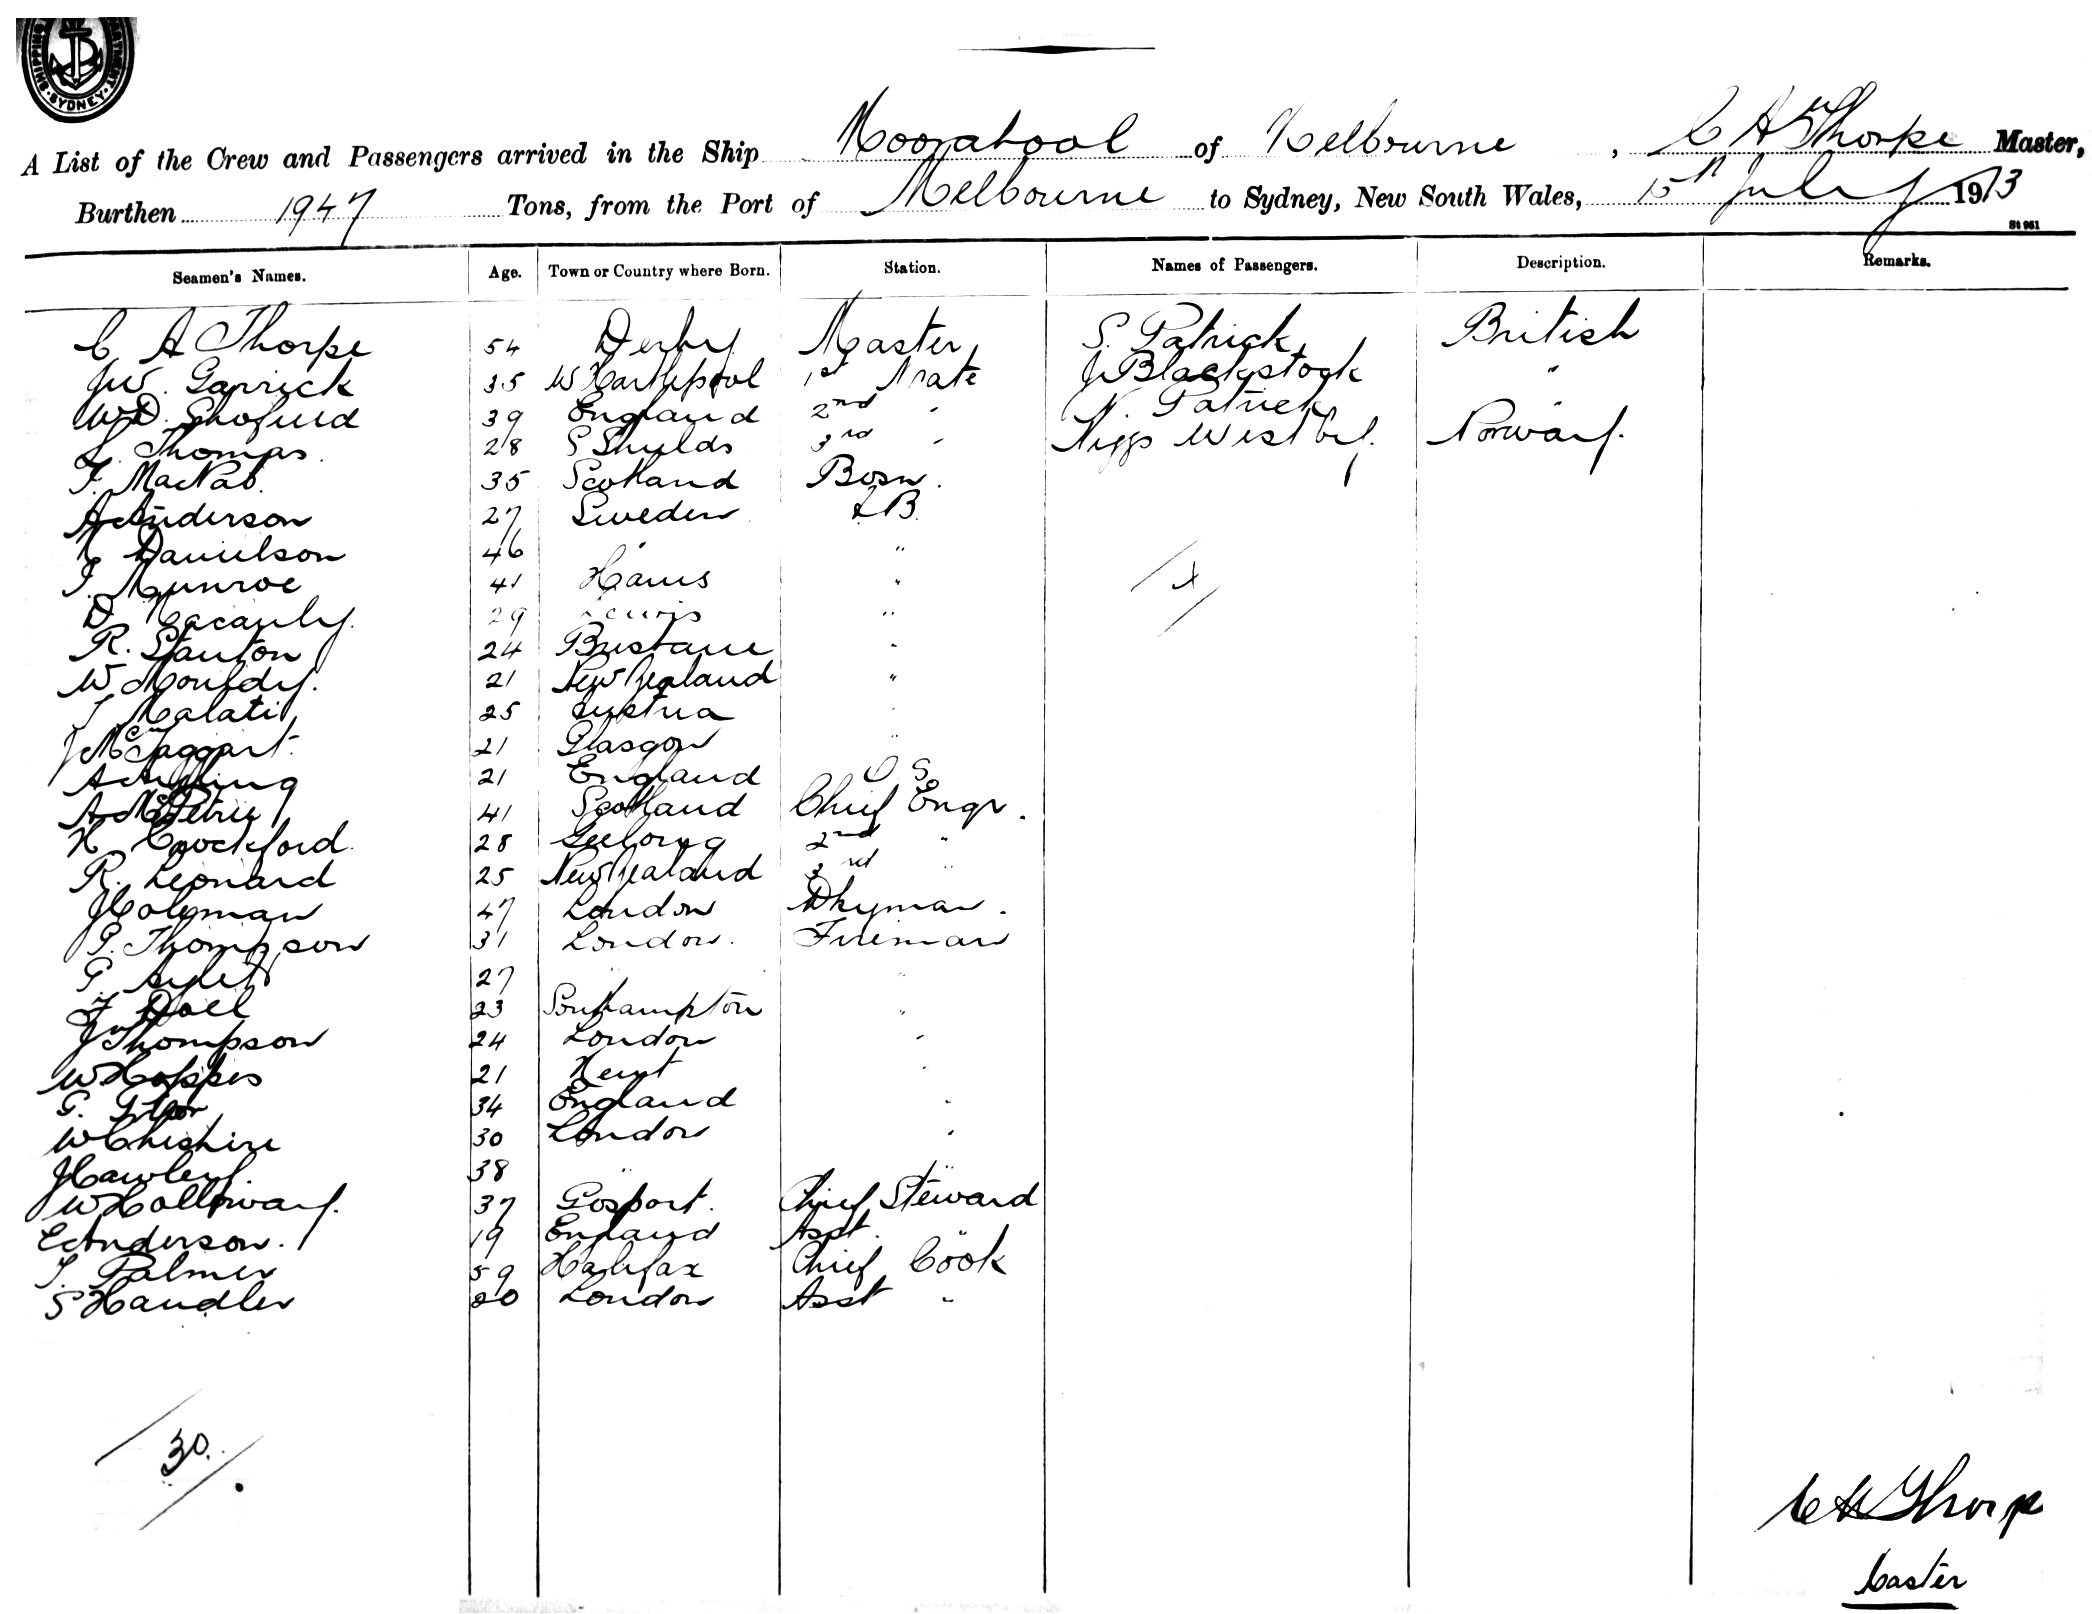 SHIPPING
SYDNEY
A List of the Crew and Passengers arrived in the Ship Moorabool of Melbourne, C A Thorpe Master,
Burthen 1947 Tons, from the Port of Melbourne to Sydney, New South Wales, 15th July 1913
St 951
Seamen's Names. Age. Town or Country where Born. Station. Names of Passengers. Description. Remarks.
C A Thorpe 54 Derby Master S. Patrick British
JW. Garrick 35 W Hartlepool 1st Mate J Blackstock "
W.D. 39 England 2nd " N. Patrick
Thomas 28 S Shields 3rd " Westby Norway.
F. MacNab. 35 Scotland Bosn.
A Anderson 27 Sweden AB
Danielson 46 " "
Munroe 41 Harris "
D Macauly. 29 Lewis "
R. Stanton 24 Brisbane "
W 21 New Zealand "
Malati 25 Austria "
J McTaggart. 21 Glasgow "
21 England O S
A McPetrie 41 Scotland Chief Engr.
H Crockford 28 Geelong 2nd "
R. Leonard 25 New Zealand 3rd "
J Coleman 47 London Dkyman.
G. Thompson 31 London. Fireman
G. 27 " "
F Doel 23 Southampton "
J Thompson 24 London "
W Hoppes 21 Kent "
G. 34 England "
W Cheshire 30 London "
J Cawley 38 " "
W Holloway. 37 Gosport. Chief Steward
E Anderson. 19 England Asst. "
Palmer 59 Halifax Chief Cook
S Handler 20 London Asst "
/4/
/30./.
C A Thorpe
Master